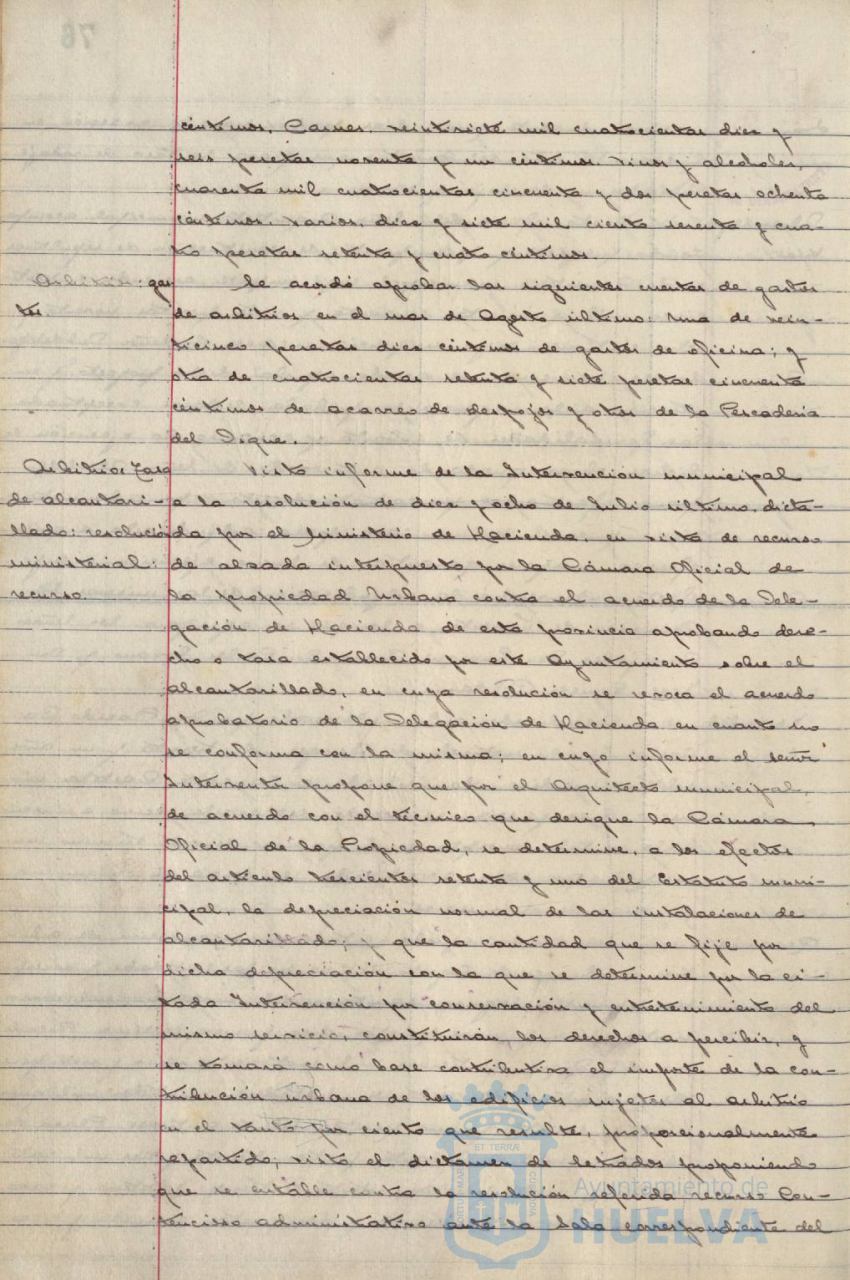 céntimos. Carnes, veintisiete mil cuatrocientas diez y
seis pesetas noventa y un céntimos. Vinos y alcoholes,
cuarenta mil cuatrocientas cincuenta y dos pesetas ochenta
céntimos. Varios, diez y siete mil ciento sesenta y cua-
tro pesetas setenta y cuatro céntimos.
Arbitrios: gas
tos.
Se acordó aprobar las siguientes cuentas de gastos
de arbitrios en el mes de Agosto último: una de vein-
ticinco pesetas diez céntimos de gastos de oficina; y
otra de cuatrocientas setenta y siete pesetas cincuenta
céntimos de acarreo de despojos y otros de la Pescadería
del Dique.
Arbitrios Tasa
de alcantari-
llado: resolución
ministerial:
recurso.
Visto informe de la Intervención municipal
a la resolución de diez y ocho de Julio último, dicta-
da por el Ministerio de Hacienda, en vista de recurso
de alzada interpuesto por la Cámara Oficial de
la propiedad Urbana contra el acuerdo de la Dele-
gación de Hacienda de esta provincia aprobando dere-
cho o tasa establecido por este Ayuntamiento sobre el
alcantarillado, en cuya resolución se revoca el acuerdo
aprobatorio de la Delegación de Hacienda en cuanto no
se conforma con la misma; en cuyo informe el señor
Interventor propone que por el Arquitecto municipal,
de acuerdo con el técnico que designe la Cámara
Oficial de la Propiedad, se determine, a los efectos
del artículo trescientos setenta y uno del Estatuto muni-
cipal, la depreciación normal de las instalaciones de
alcantarillado; y que la cantidad que se fije por
dicha depreciación con la que se determine por la ci-
tada Intervención por conservación y entretenimiento del
mismo servicio, constituirán los derechos a percibir, y
se tomará como base contributiva el importe de la con-
tribución urbana de los edificios sujetos al arbitrio
en el tanto por ciento que resulte, proporcionalmente
repartido; visto el dictamen de letrados proponiendo
que se entable contra la resolución referida recurso Con-
tencioso administrativo ante la Sala correspondiente del
Ayuntamiento de
HUELVA